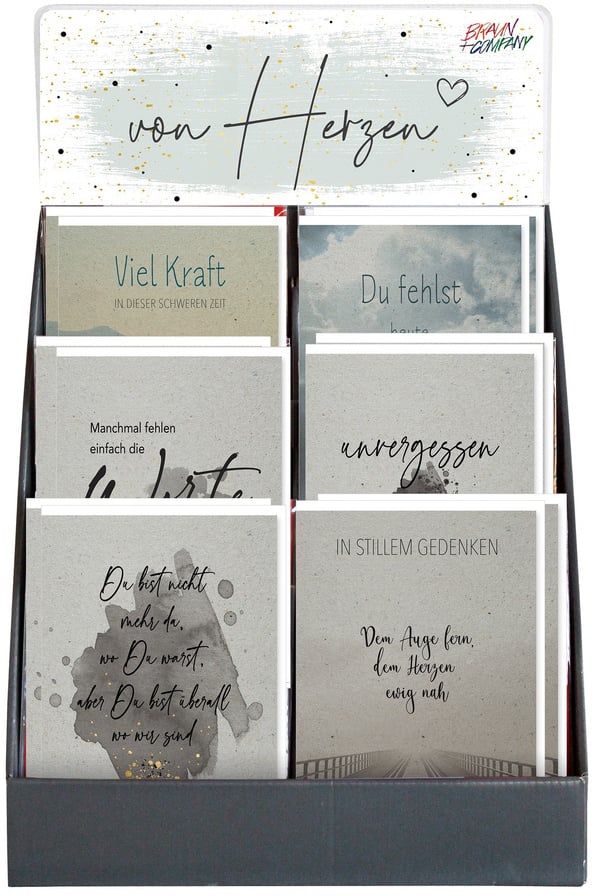 BRAUN
+COMPANY
von Herzen
Viel Kraft
IN DIESER SCHWEREN ZEIT
Du fehlst
heute
Manchmal fehlen
einfach die
Worte
unvergessen
Du bist nicht
mehr da,
wo Du warst,
aber Du bist überall
wo wir sind
IN STILLEM GEDENKEN
Dem Auge fern,
dem Herzen
ewig nah